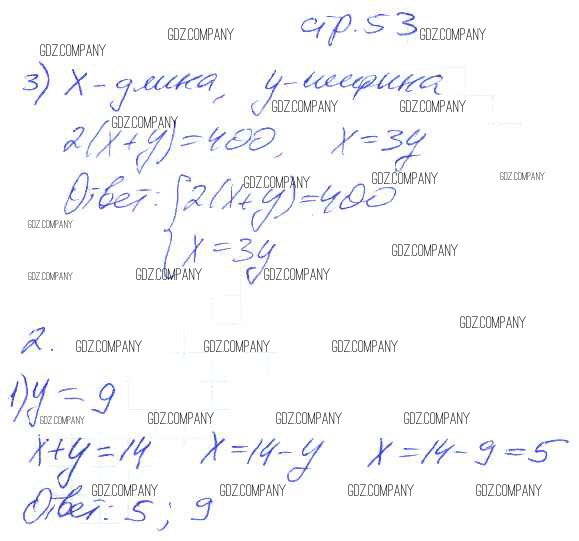 стр. 53
GDZ.COMPANY GDZ.COMPANY
GDZ.COMPANY
3) X - длина, y - ширина
GDZ.COMPANY GDZ.COMPANY
GDZ.COMPANY
2(X+y)=400, X=3y
GDZ.COMPANY GDZ.COMPANY GDZ.COMPANY
Ответ: { 2(X+y)=400
GDZ.COMPANY
X=3y
GDZ.COMPANY
GDZ.COMPANY GDZ.COMPANY GDZ.COMPANY
GDZ.COMPANY
2.
GDZ.COMPANY GDZ.COMPANY GDZ.COMPANY
1) y = 9
GDZ.COMPANY GDZ.COMPANY GDZ.COMPANY GDZ.COMPANY
X+y=14 X=14-y X=14-9=5
GDZ.COMPANY GDZ.COMPANY GDZ.COMPANY GDZ.COMPANY
Ответ: 5; 9